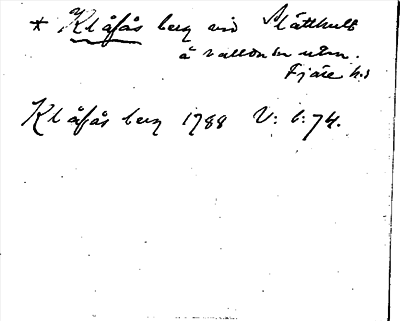 * Klåfås berg vid Slätthult
å vallda sn utm.
Fjäre hd
Klåfås berg 1788 V: 6: 74.